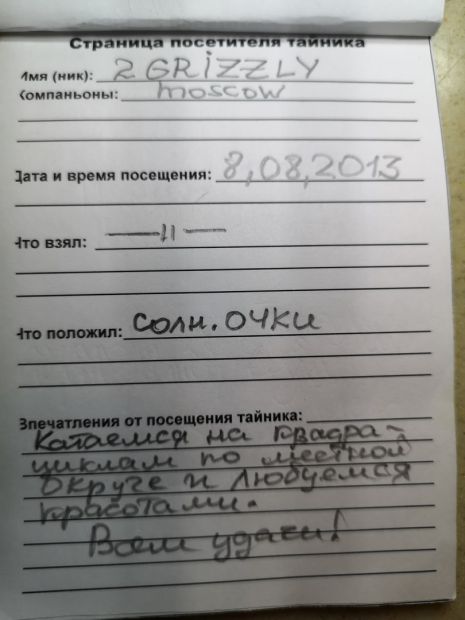 Страница посетителя тайника
Имя (ник): 2 GRIZZLY
Компаньоны: moscow
Дата и время посещения: 8,08,2013
Что взял: —— 11 ——
Что положил: солн. очки
Впечатления от посещения тайника:
Катаемся на квадра-
циклам по местной
округе и любуемся
красотами.
Всем удачи!